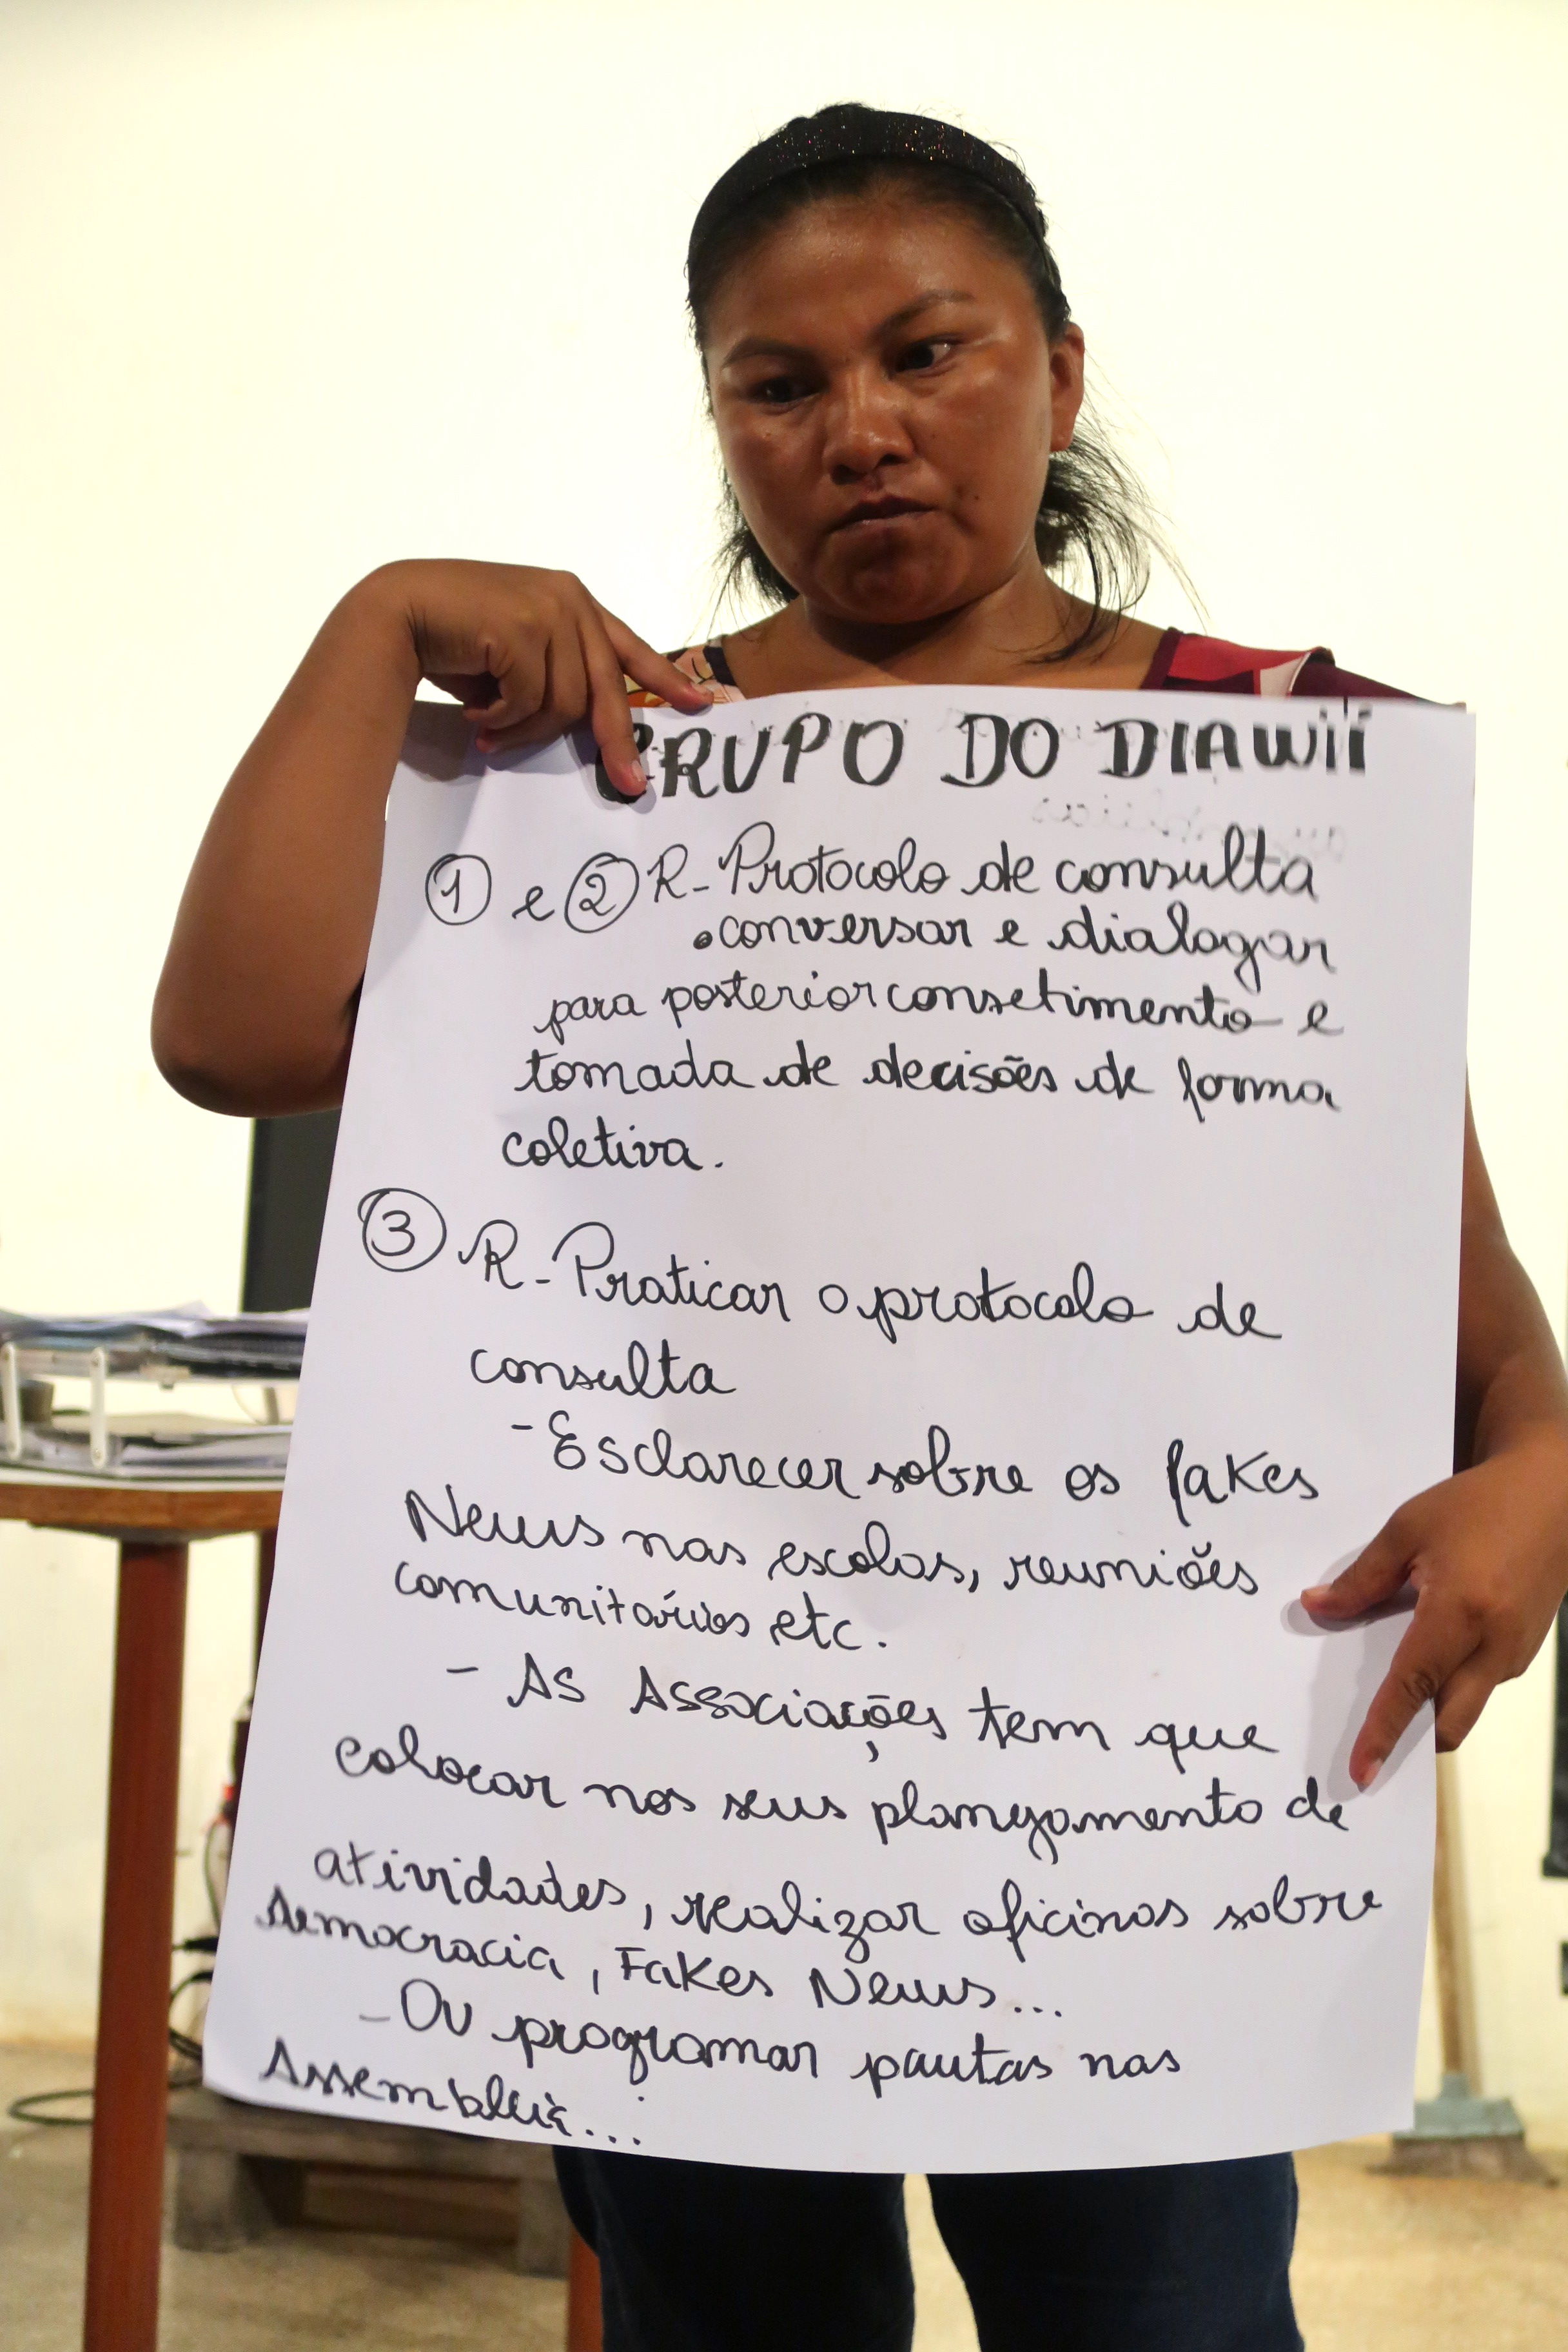 GRUPO DO DIAWIÍ
① e ② R- Protocolo de consulta
• conversar e dialogar
para posterior consetimento e
tomada de decisões de forma
coletiva.
③ R- Praticar o protocolo de
consulta
- Esclarecer sobre os fakes
News nas escolas, reuniões
comunitários etc.
- As Associações tem que
colocar nos seus planejamento de
atividades, realizar oficinas sobre
democracia, Fakes News...
- Ou programar pautas nas
Assembleia...